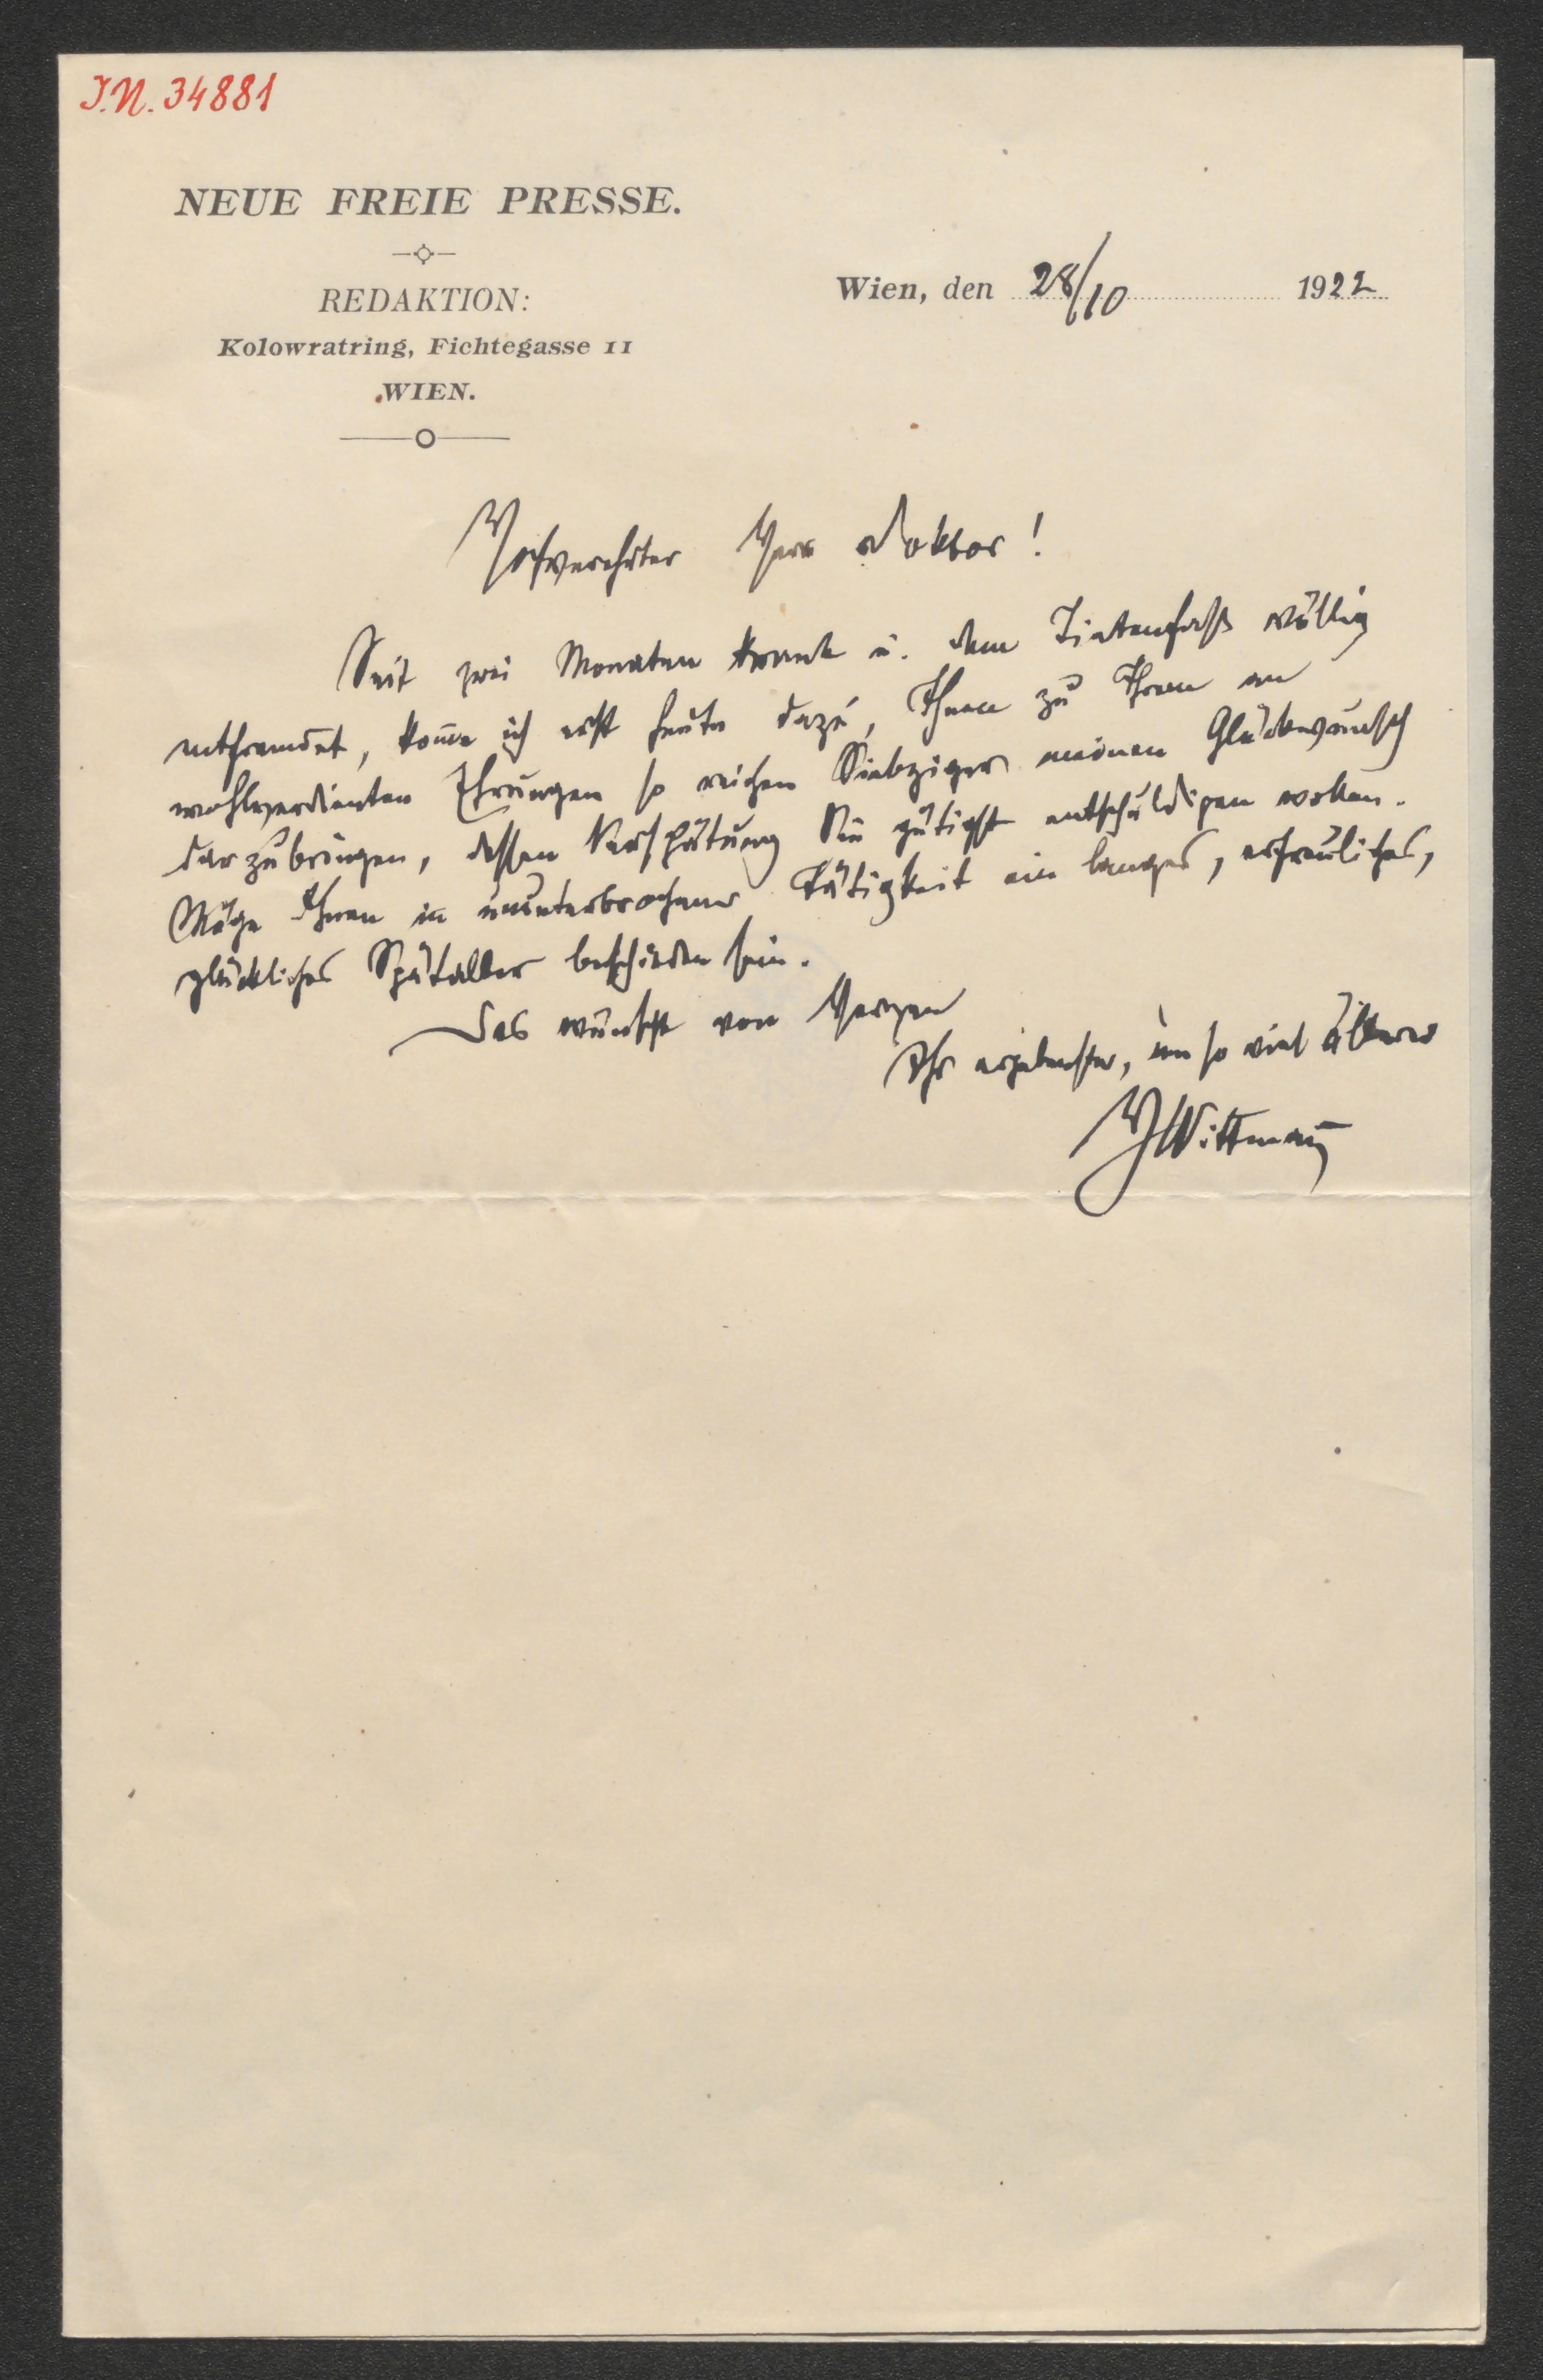 J.N. 34881
NEUE FREIE PRESSE.
REDAKTION:
Kolowratring, Fichtegasse 11
WIEN.
Wien, den 28/10 1922
Hochverehrter Herr Doktor!
Seit zwei Monaten krank u. dem Tintenfaß völlig
entfremdet, kom̅e ich erst heute dazu, Ihnen zu Ihrem an
wohlverdienten Ehrungen so reichen Siebziger meinen Glückwunsch
darzubringen, dessen Verspätung Sie gütigst entschuldigen wollen.
Möge Ihnen in ununterbrochener Tätigkeit ein langes, erfreuliches,
glückliches Spätalter beschieden sein.
Das wünscht von Herzen
Ihr ergebenster, um so viel älterer
HWittman̅